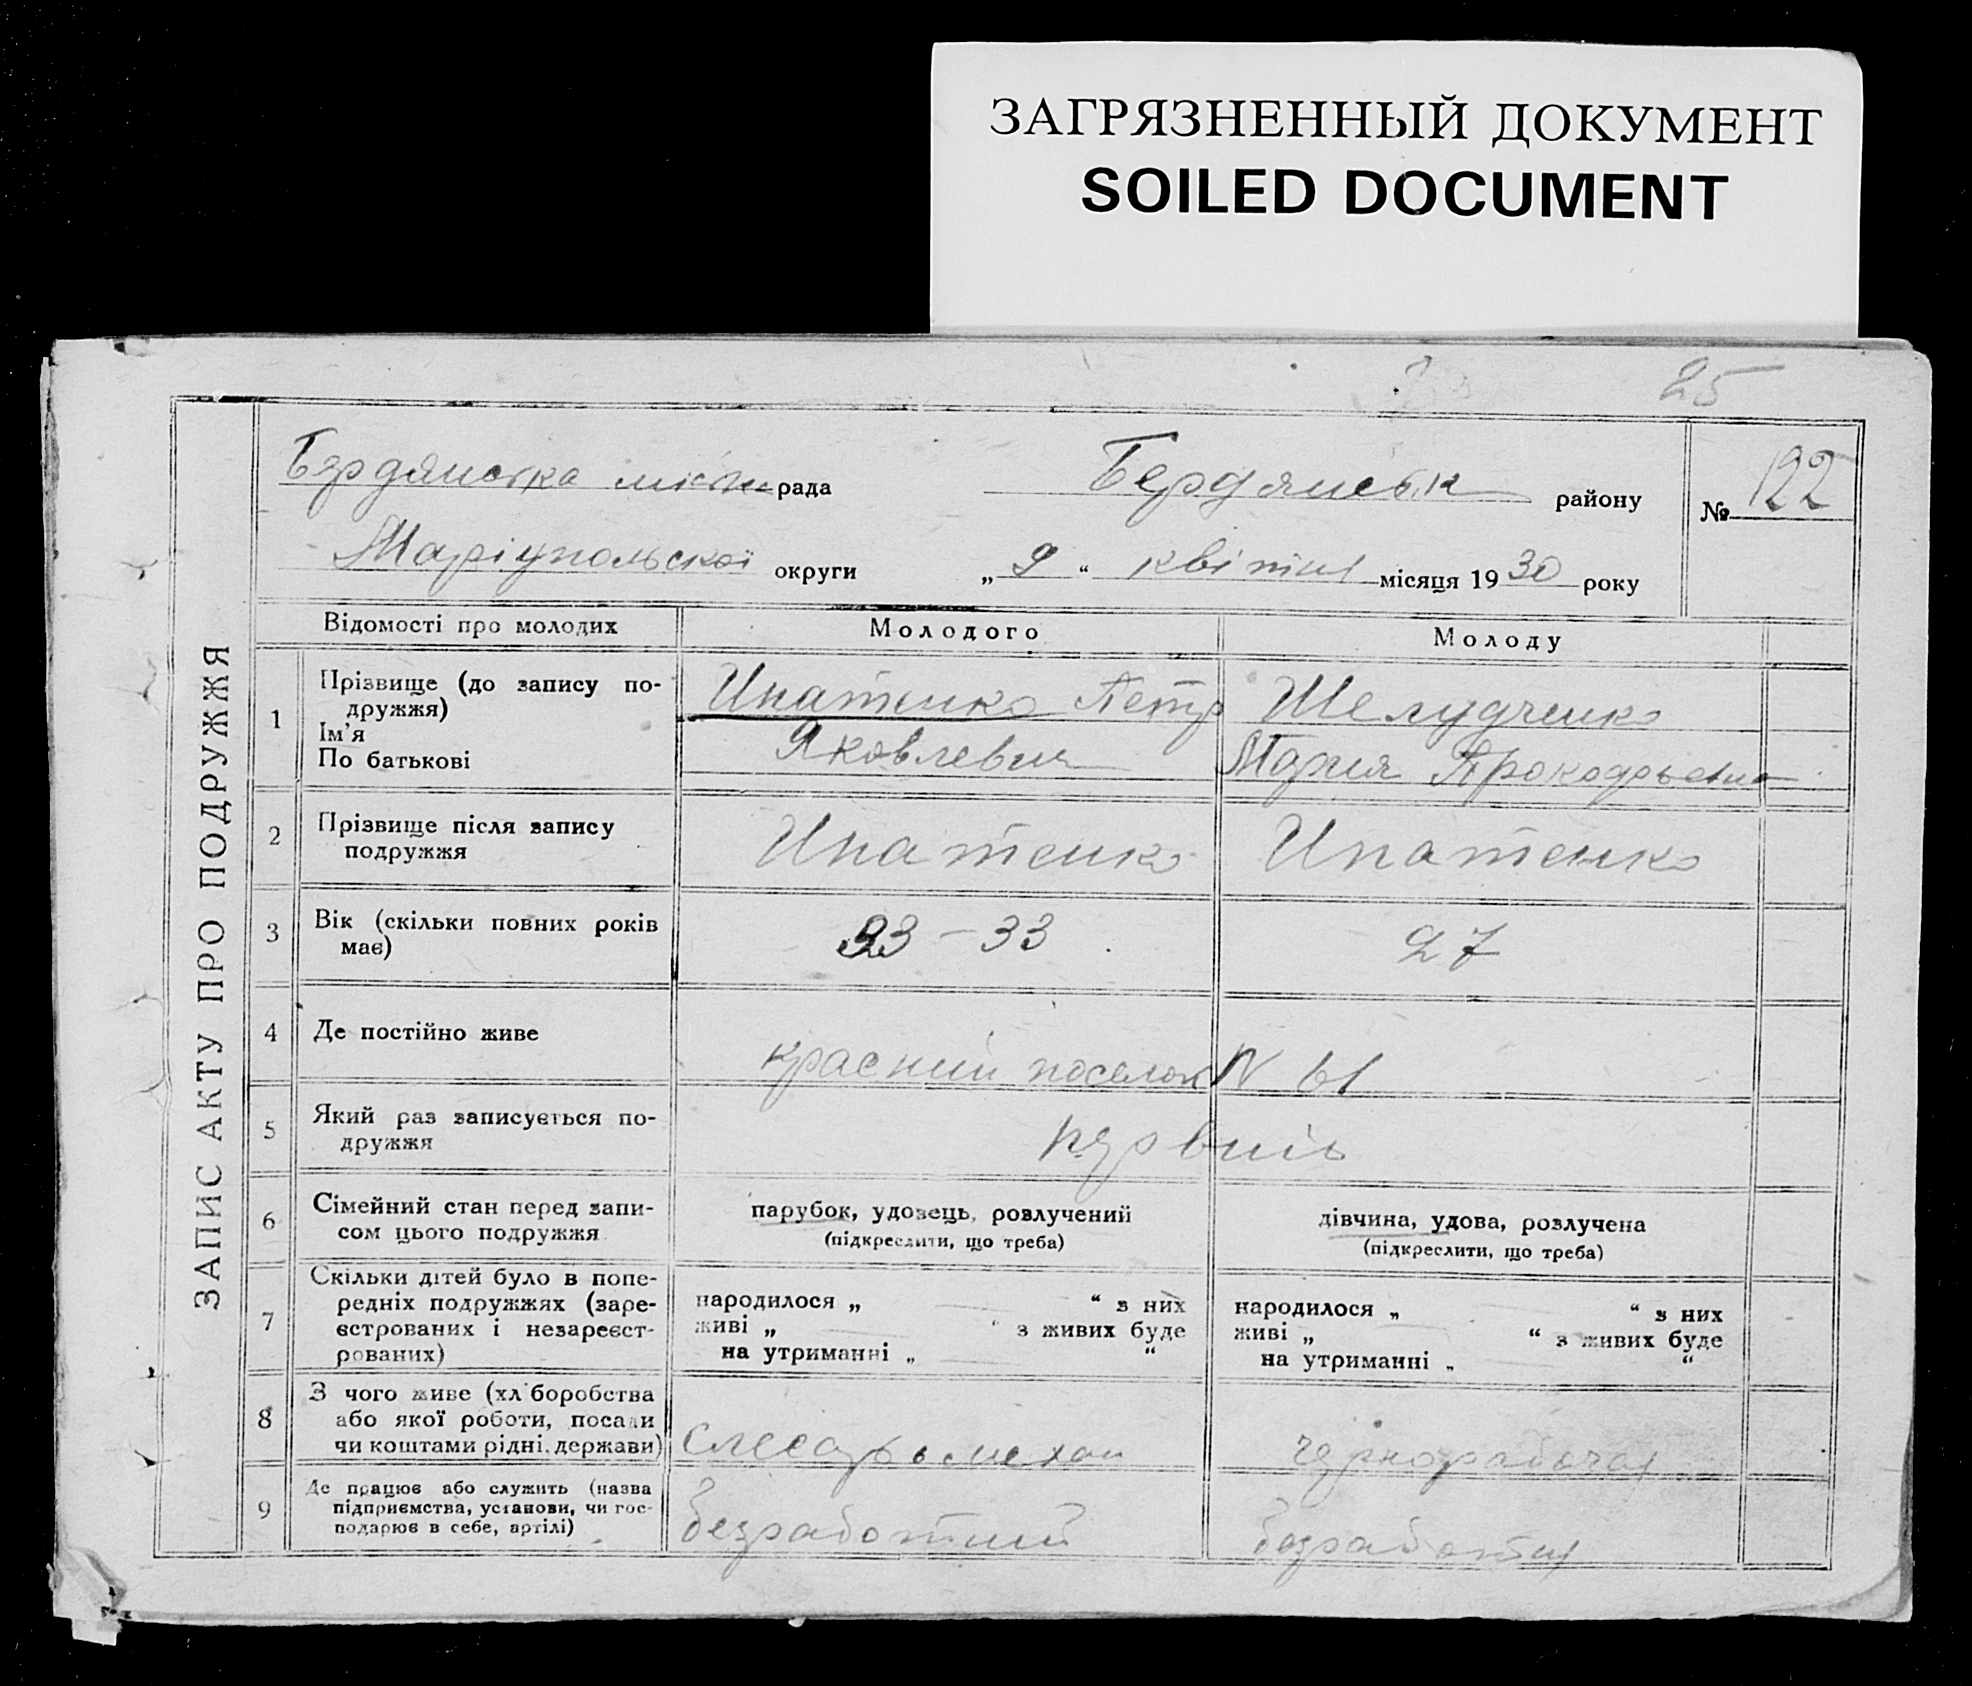 ЗАГРЯЗНЕННЫЙ ДОКУМЕНТ
SOILED DOCUMENT
25
ЗАПИС АКТУ ПРО ПОДРУЖЖЯ
Бердянська міськ рада Бердянськ району № 122
Маріупольскої округи „ 9 “ квітня місяця 19 30 року
Відомості про молодих Молодого Молоду
1 Прізвище (до запису по-
дружжя)
Ім'я
По батькові
Ипатенко Петр
Яковлевич
Шелудченко
Мария Прокофьевна
2 Прізвище після запису
подружжя
Ипатенко Ипатенко
3 Вік (скільки повних років
має)
33 – 33 27
4 Де постійно живе
красний поселок N 61
5 Який раз записується по-
дружжя
первий
6 Сімейний стан перед запи-
сом цього подружжя
парубок, удовець, розлучений
(підкреслити, що треба)
дівчина, удова, розлучена
(підкреслити, що треба)
7 Скільки дітей було в попе-
редніх подружжях (заре-
єстрованих і незареєст-
рованих)
народилося „ “ з них
живі „ “ з живих буде
на утриманні „ “
народилося „ “ з них
живі „ “ з живих буде
на утриманні „ “
8 З чого живе (хліборобства
або якої роботи, посади
чи коштами рідні, держави)
слесарь механ чернорабочая
9 Де працює або служить (назва
підприємства, установи, чи гос-
подарює в себе, артілі)
безработний безработня